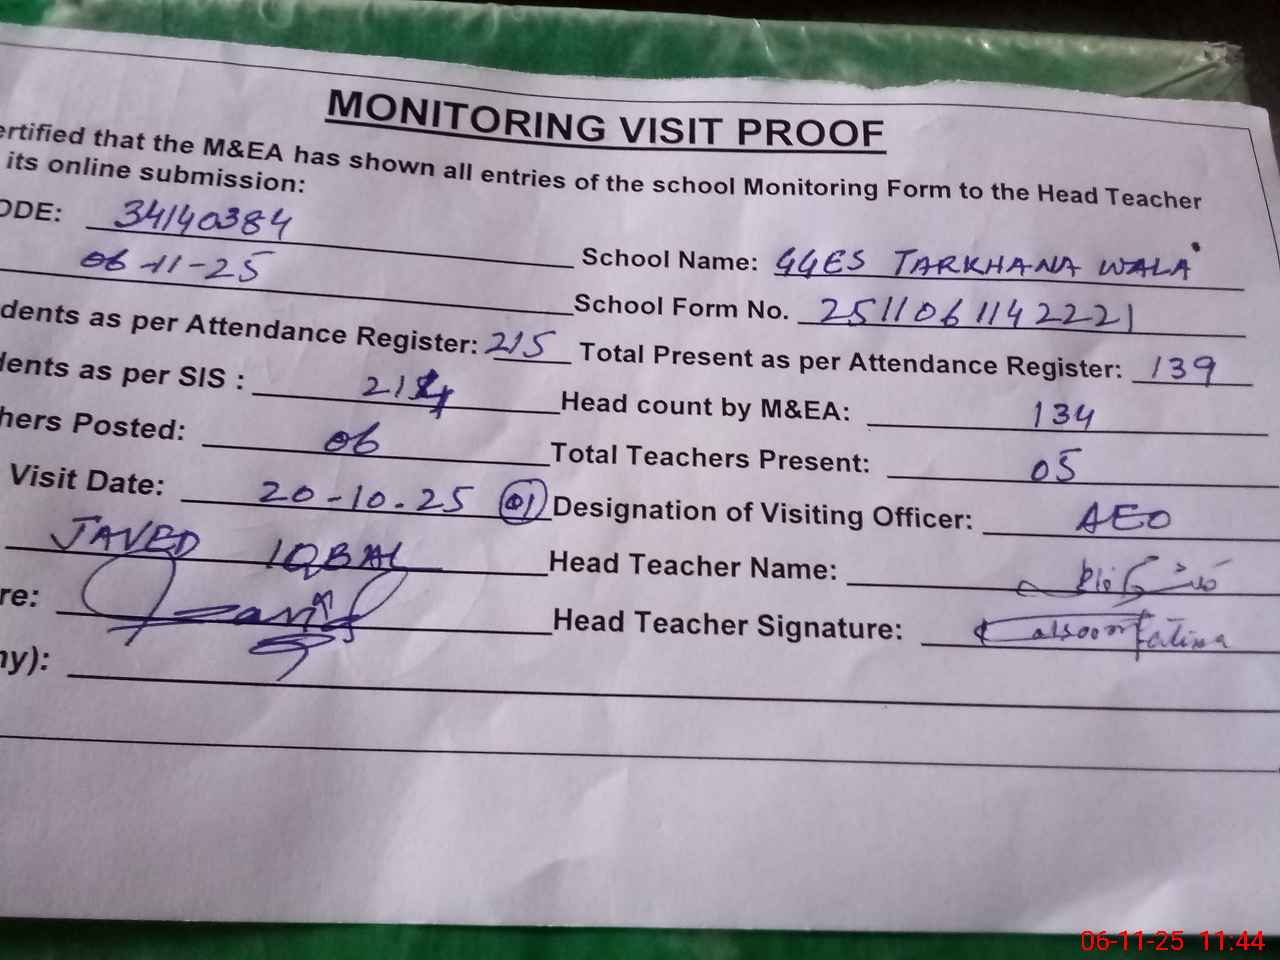 MONITORING VISIT PROOF
ertified that the M&EA has shown all entries of the school Monitoring Form to the Head Teacher
its online submission:
ODE: 34140384 School Name: GGES TARKHANA WALA
06-11-25 School Form No. 2511061142221
dents as per Attendance Register: 215 Total Present as per Attendance Register: 139
dents as per SIS : 214 Head count by M&EA: 134
hers Posted: 06 Total Teachers Present: 05
Visit Date: 20-10-25 01 Designation of Visiting Officer: AEO
JAVED IQBAL Head Teacher Name:
re: Head Teacher Signature: Kalsoom Fatima
ny):
06-11-25 11:44